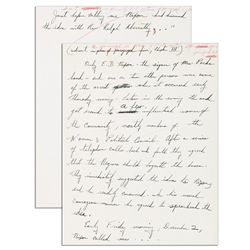 Just before calling me Nixon had discussed
the idea with Rev. Ralph Abernathy
Only E.D. Nixon - the signer of Mrs Parks
bond - and one or two other persons were aware
of the arrest when it occurred early
Thursday evening. Later in the evening the word
got around to a few influential women of
the community, mostly members of the
Women's Political Council. After a series
of telephone calls back and forth they agreed
that the Negroes should boycott the buses. They
immediately suggested the idea to Nixon,
and he readily concurred. In his usual
courageous manner he agreed to spearhead the
idea.
Early Friday morning, December 2,
Nixon called me